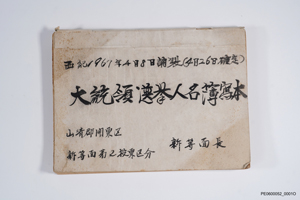 西紀1967年4月8日調製(4月26日確定)
大統領選挙人名簿写本
山清郡開票区
新等面第乙投票区分
新等面長
PE0600052_0001D